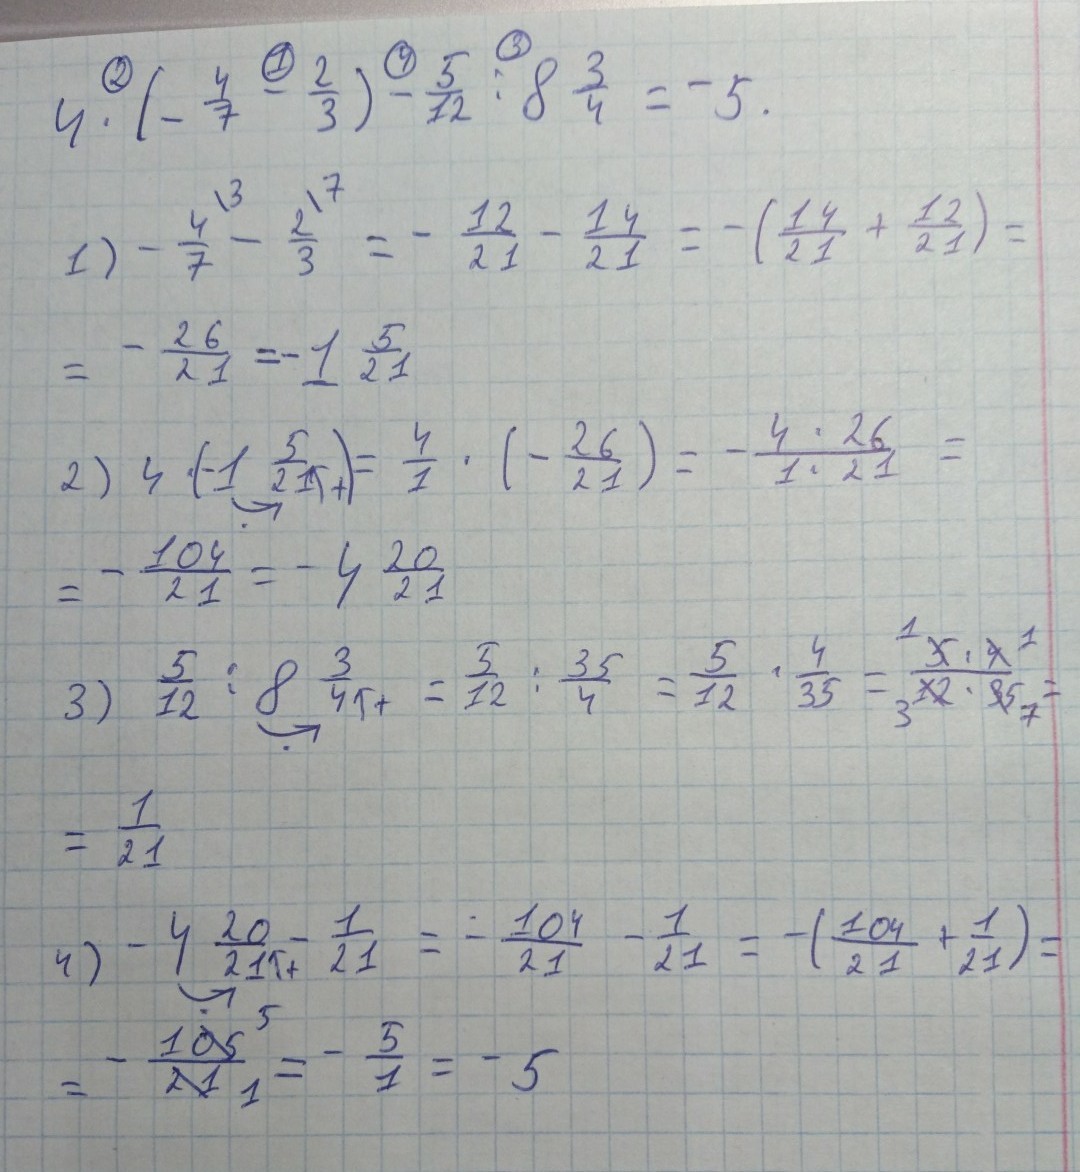 4 ·② (- 4/7 -① 2/3) -④ 5/12 :③ 8 3/4 = -5.
1) - 4/7 \3 - 2/3 \7 = - 12/21 - 14/21 = -(14/21 + 12/21) =
= - 26/21 = -1 5/21
2) 4 · (-1 5/21) = 4/1 · (- 26/21) = - 4 · 26/1 · 21 =
= - 104/21 = - 4 20/21
3) 5/12 : 8 3/4 = 5/12 : 35/4 = 5/12 · 4/35 = 5 · 4/12 · 35 =
= 1/21
4) - 4 20/21 - 1/21 = - 104/21 - 1/21 = -(104/21 + 1/21) =
= - 105/21 = - 5/1 = -5